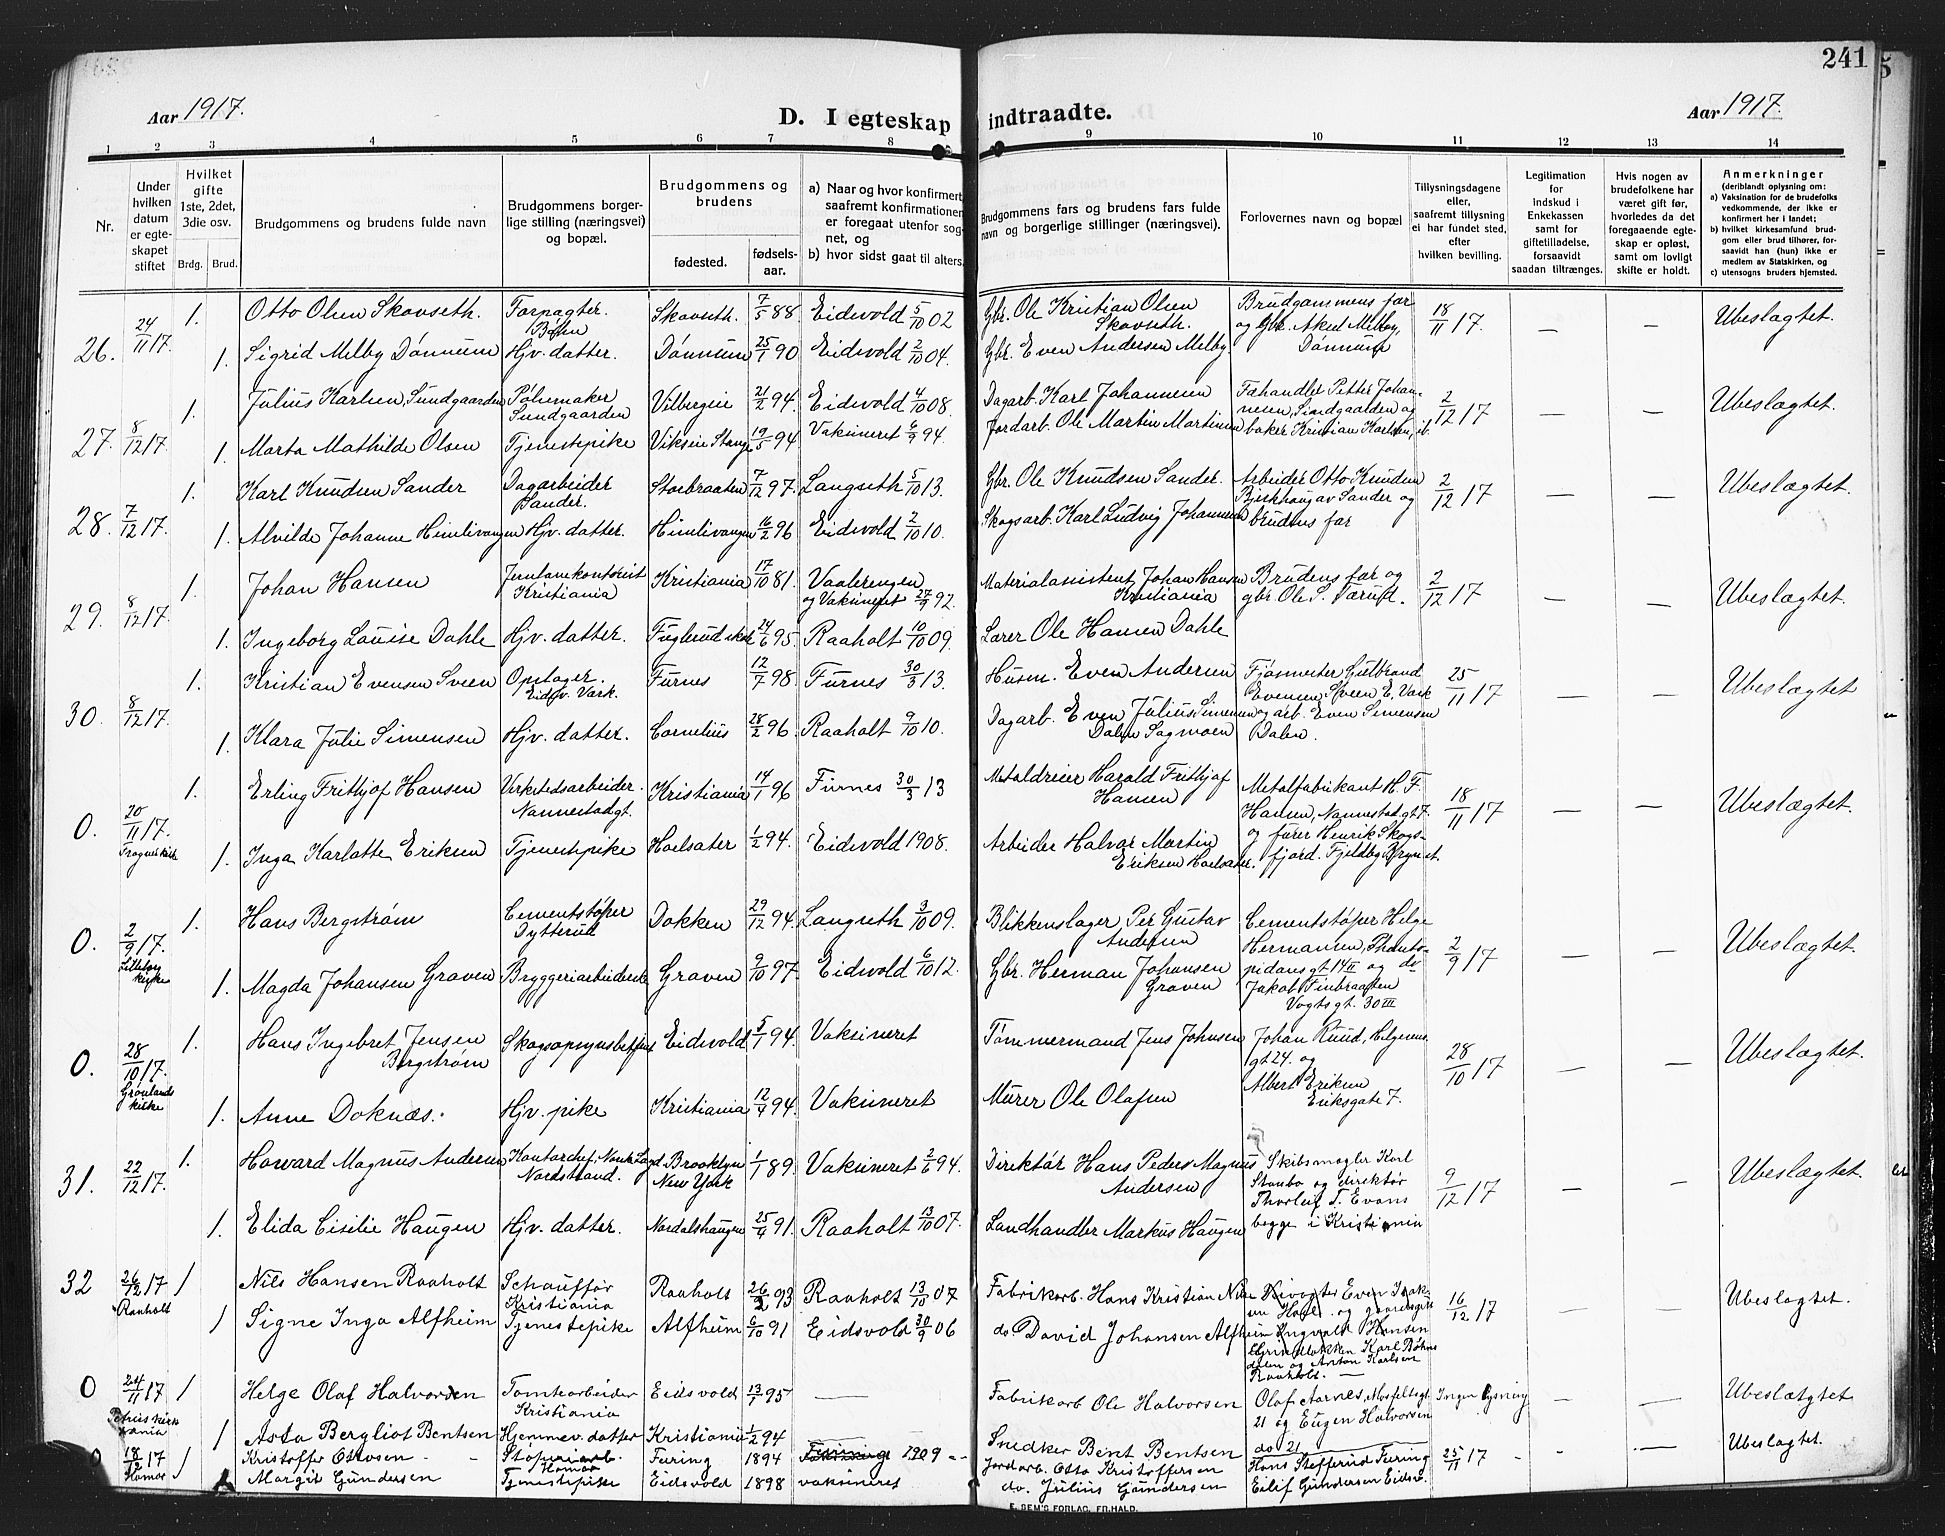 241
Aar 1917.
D. I egteskap indtraadte.
Aar 1917.
1 2 3 4 5 6 7 8 9 10 11 12 13 14
Nr.
Under hvilken datum er egteskapet stiftet
Hvilket gifte 1ste, 2det, 3die osv.
Brdg. Brud.
Brudgommens og brudens fulde navn
Brudgommens borgerlige stilling (næringsvei) og bopæl.
Brudgommens og brudens
fødested. fødselsaar.
a) Naar og hvor konfirmert, saafremt konfirmationen er foregaat utenfor sognet, og
b) hvor sidst gaat til alters.
Brudgommens fars og brudens fars fulde navn og borgerlige stillinger (næringsvei).
Forlovernes navn og bopæl
Tillysningsdagene eller, saafremt tillysning ei har fundet sted, efter hvilken bevilling.
Legitimation for indskud i Enkekassen samt for giftetilladelse, forsaavidt saadan tiltrænges.
Hvis nogen av brudefolkene har været gift før, hvorledes da det foregaaende egteskap er opløst, samt om lovligt skifte er holdt.
Anmerkninger
(deriblandt oplysning om:
a) Vaksination for de brudefolks vedkommende, der ikke er konfirmert her i landet;
b) hvilket kirkesamfund brudgom eller brud tilhører, forsaavidt han (hun) ikke er medlem av Statskirken, og
c) utensogns bruders hjemsted.
26. 24/11 17. 1. Otto Olsen Skovseth. Forpagter. Bøhn Skovseth. 7/5 88 Eidsvold 5/10 02 Gbr. Ole Kristian Olsen Skovseth. Brudgommens far og Gbr. Aksel Melby, Dønnum 18/11 17. — — Ubeslægtet.
1. Sigrid Melby Dønnum Hjv. datter. Dønnum 25/1 90 Eidsvold 2/10 04. Gbr. Even Andersen Melby.
27. 8/12 17. 1. Julius Karlsen, Sundgaarden Pølsemaker Sundgaarden Vilbergeie 21/2 94. Eidsvold 4/10 08. Dagarb. Karl Johannesen Fæhandler Petter Johannesen, Sundgaarden og baker Kristian Karlsen, ib. 2/12 17 — — Ubeslægtet.
1. Marta Mathilde Olsen Tjenestepike Vikseie Stange 19/5 94 Vaksineret 6/9 94. Jordarb. Ole Martin Martinsen
28. 7/12 17. 1. Karl Knudsen Sander Dagarbeider Sander. Storbraaten 7/12 97. Langseth 5/10 13. Gbr. Ole Knudsen Sander. Arbeider Otto Knudsen Bjerkhaug av Sander og brudens far 2/12 17 — — Ubeslægtet.
1. Alvilde Johanne Himlivangen Hjv. datter. Himlivangen 16/2 96 Eidsvold 2/10 10. Skogsarb. Karl Ludvig Johannesen
29. 8/12 17. 1. Johan Hansen Jernbanekontorist Kristiania Kristiania 17/10 81. Vaalerengen og Vaksineret 27/9 92. Materialassistent Johan Hansen Kristiania Brudens far og gbr. Ole S. Tærud. 2/12 17 — — Ubeslægtet.
1. Ingeborg Louise Dahle Hjv. datter. Fuglerud skole 24/6 95 Raaholt 10/10 09. Lærer Ole Hansen Dahle
30. 8/12 17. 1. Kristian Evensen Sveen Opslager. Eidsv. Værk. Furnes 12/7 98 Furnes 30/3 13. Husm. Even Andersen Fjøsmester Gulbrand Evensen, Sveen E. Værk og arb. Even Simensen Dalen. 25/11 17 — — Ubeslægtet
1. Klara Julie Simensen Hjv. datter. Cornelius 28/2 96 Raaholt 9/10 10. Dagarb. Even Julius Simensen Dalen Sagmoen
0. 20/11 17. Frogner kirke 1. Erling Frithjof Hansen Verkstedsarbeider. Nannestadgt. Kristiania 14/1 96 Furnes 30/3 13 Metaldreier Harald Frithjof Hansen Metalfabrikant H. F. Hansen, Nannestadgt 7. og fører Henrik Skogsfjord. Fjeldby Brynst. 18/11 17 — — Ubeslægtet.
1. Inga Karlotte Eriksen Tjenestpike Hoelsæter 1/2 94. Eidsvold 1908. Arbeider Halvar Martin Eriksen Hoelsæter.
0. 2/9 17. Lilleborg kirke 1. Hans Bergstrøm Cementstøper Dytterud Dokken 29/12 94. Langseth 3/10 09. Blikkenslager Per Gustav Andersen Cementstøper Helge Hermansen, Pontoppidans gt 14 II og do Jakob Finbraaten Vogtsgt. 30 III 2/9 17 — — Ubeslægtet.
1. Magda Johansen Graven Bryggeriarbeiderske Graven 9/10 97. Eidsvold 6/10 12. Gbr. Herman Johansen Graven
0. 28/10 17. Grønlands kirke 1. Hans Ingebret Jensen Bergstrøm Skogsopsynsbetjent Eidsvold 5/1 94. Vaksineret Tømmermand Jens Johnsen Johan Ruud, Helgesens gt 24. og Albert Eriksen Eriksgate 7. 28/10 17 — — Ubeslægtet.
1. Anne Doknæs. Hjv. pike Kristiania 12/4 94. Vaksineret Murer Ole Olafsen
31. 22/12 17. 1. Howard Magnus Andersen Kontorchef, Norsk Lloyd Nordstrand. Brooklyn New York 1/1 89. Vaksineret 2/6 94. Direktør Hans Peder Magnus Andersen Skibsmægler Karl Stousbo og direktør Thorleif T. Evans begge i Kristiania 9/12 17 — — Ubeslægtet.
1. Elida Cicilie Haugen Hjv. datter. Nordalshaugen 25/4 91. Raaholt 13/10 07. Landhandler Markus Haugen
32 26/12 17 Raaholt 1 Nils Hansen Raaholt Schauffør Kristiania Raaholt 26/2 93 Raaholt 13/10 07 Fabrikarb. Hans Kristian Nilsen Even Isaksen Hoel og gaardsgut Ingvald Hansen Karl Bøhnsdalen og Anton Karlsen Raaholt. — 16/12 17 — — Ubeslægtet.
1 Signe Inga Alfheim Tjenestepike Alfheim 6/10 91 Eidsvold 30/9 06 do. David Johansen Alfheim
0 24/11 17 Petruskirk 1 Helge Olaf Halvorsen Tomtearbeider Kristiania Eidsvold 13/1 95 — Fabrikarb Ole Halvorsen Olaf Aarnes, Mosfeltsgt 21 og Eugen Halvorsen do 21 Ingen lysning — — Ubeslægtet
1 Asta Bergliot Bentsen Hjemmev. datter Kristiania 1/2 94 Snedker Bent Bentsen
0 18/12 17 Hamar 1 Kristoffer Ottosen Støperiarb. Hamar Furing 1894 1909 Jordarb. Otto Kristoffersen Hans Stefferud Furing 25/11 17 - — Ubeslægtet.
Margit Gundersen Tjenestepike Eidsvold 1898 vaksineret do. Julius Gundersen Eilif Gundersen Eidsv.
E. SEM'S FORLAG, FR.HALD.